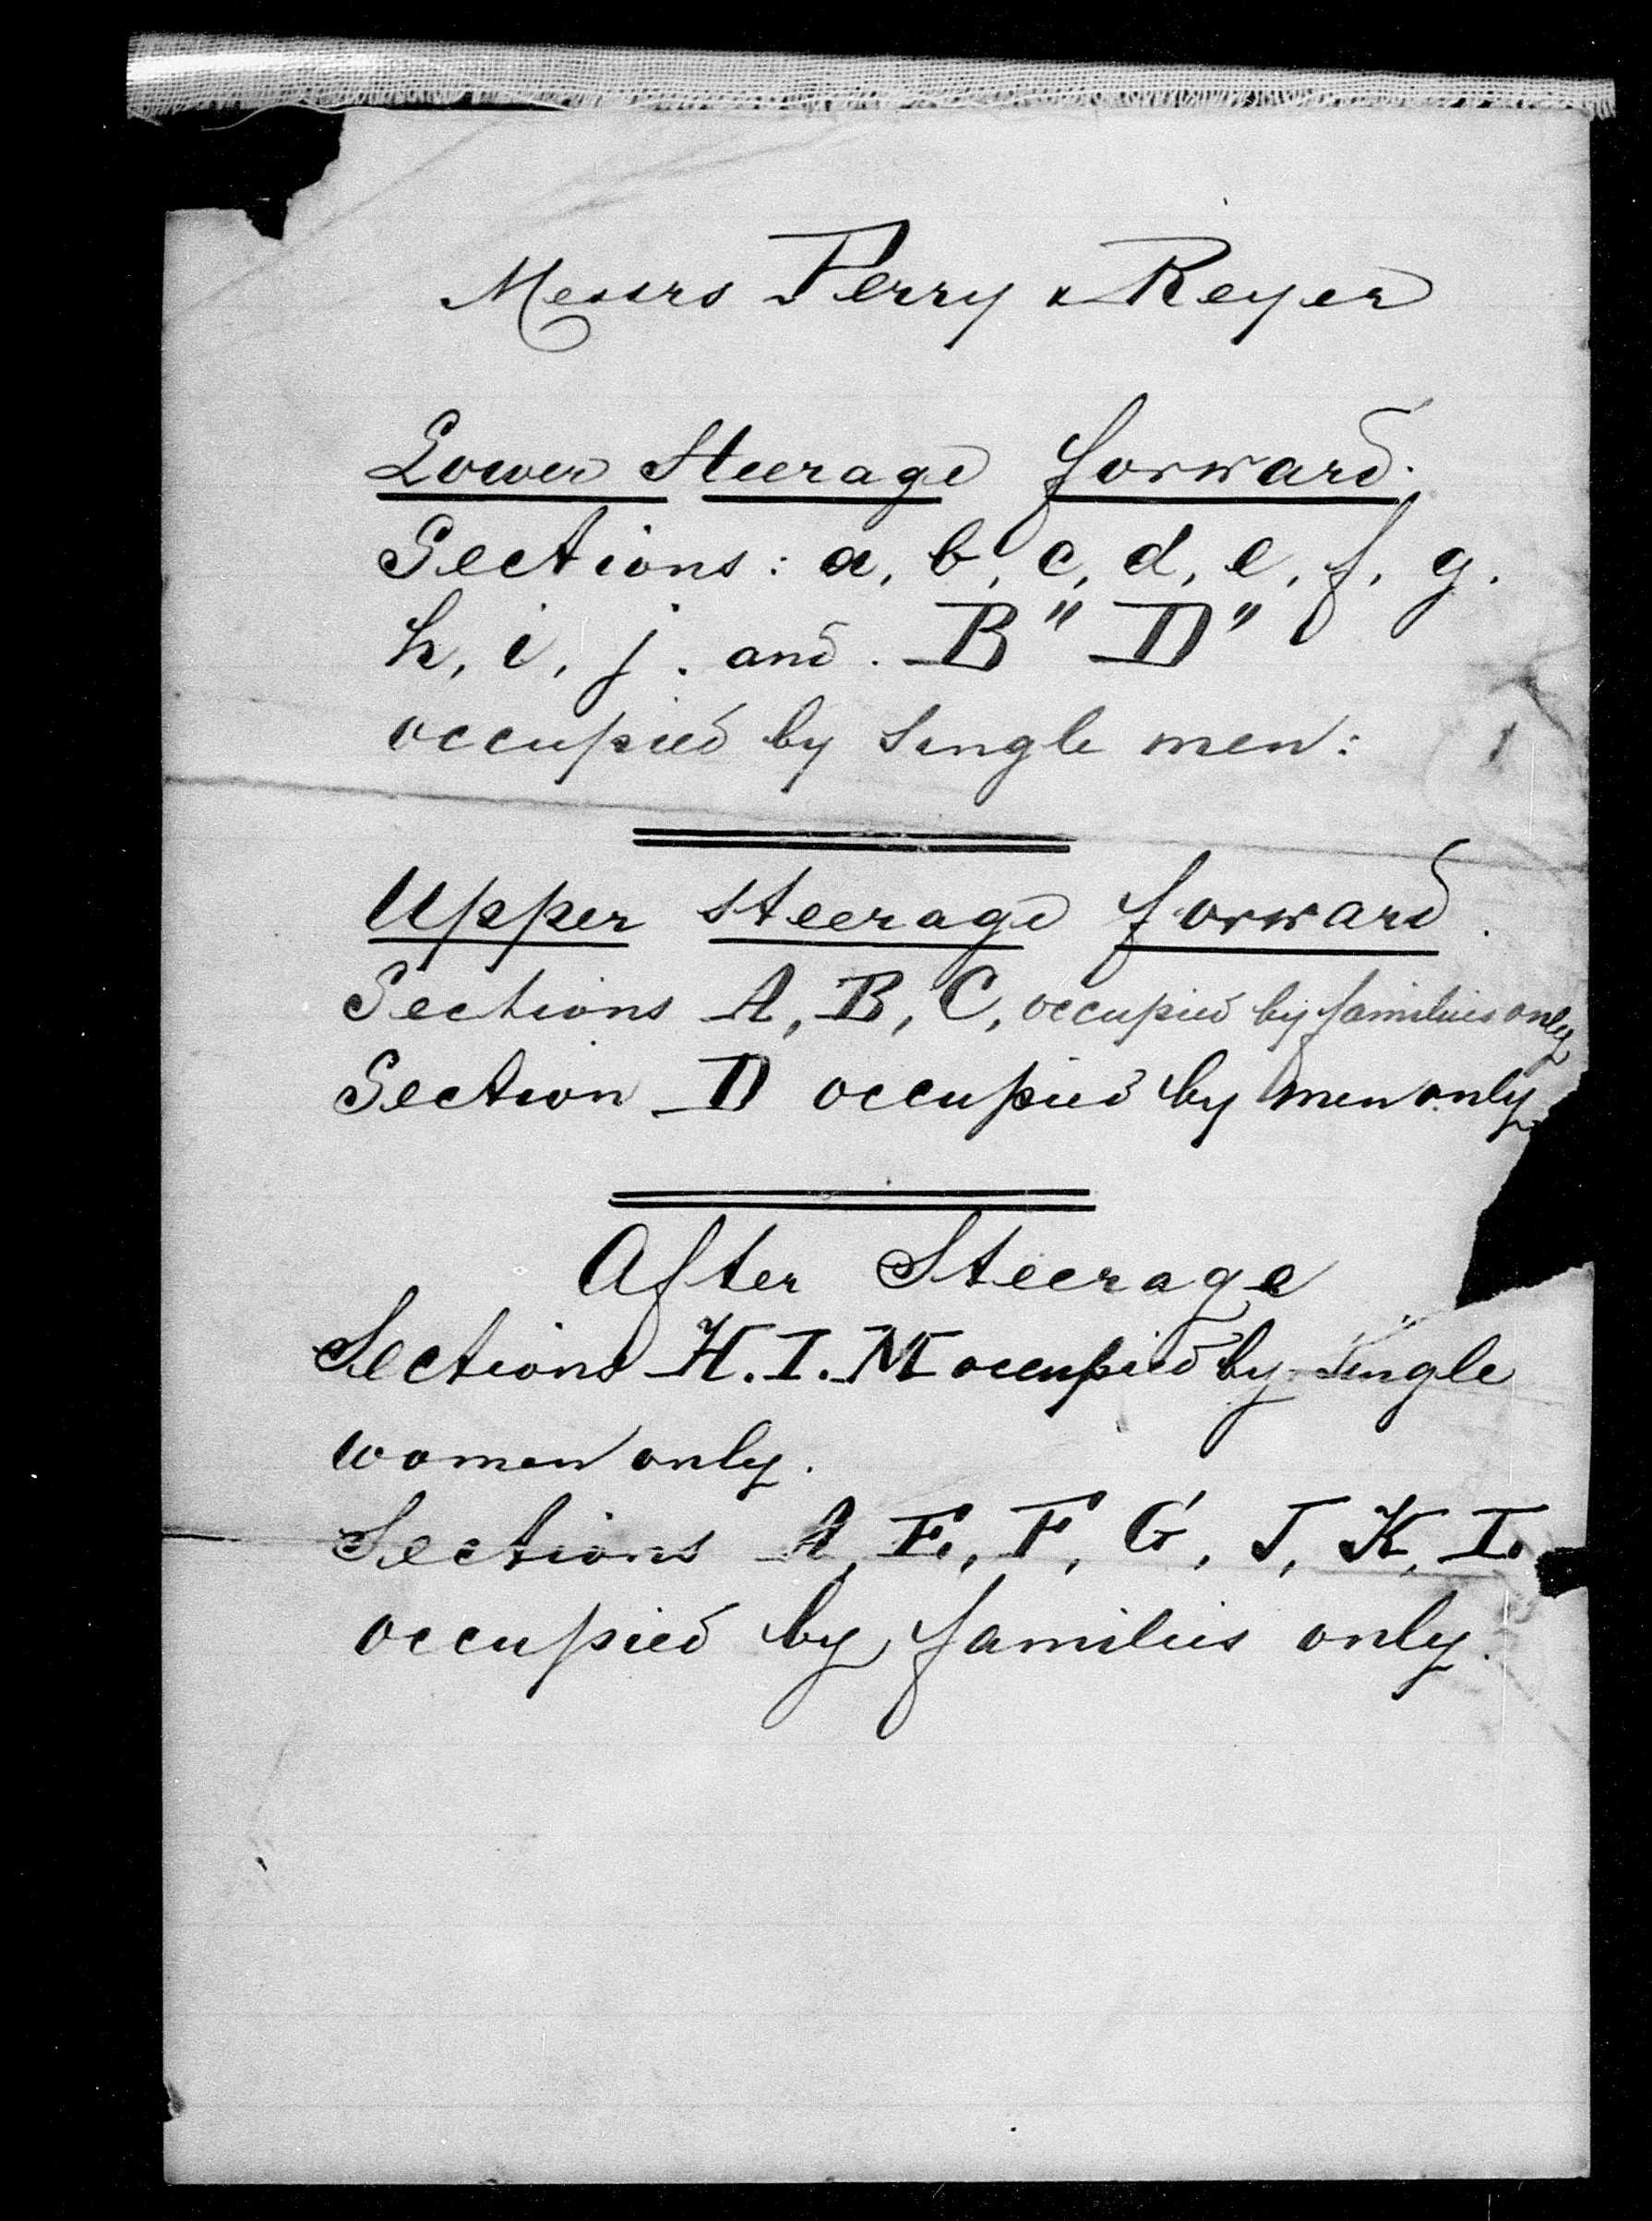 Messrs Perry & Reyer
Lower Steerage forward.
Sections: a, b, c, d, e, f, g.
h, i, j. and. B" D"
occupied by Single men:
Upper steerage forward.
Sections A, B, C, occupied by families only
Section D occupied by men only
After Steerage
Sections H. I. M occupied by Single
women only.
Sections A, E, F, G, J, K, L.
occupied by families only.